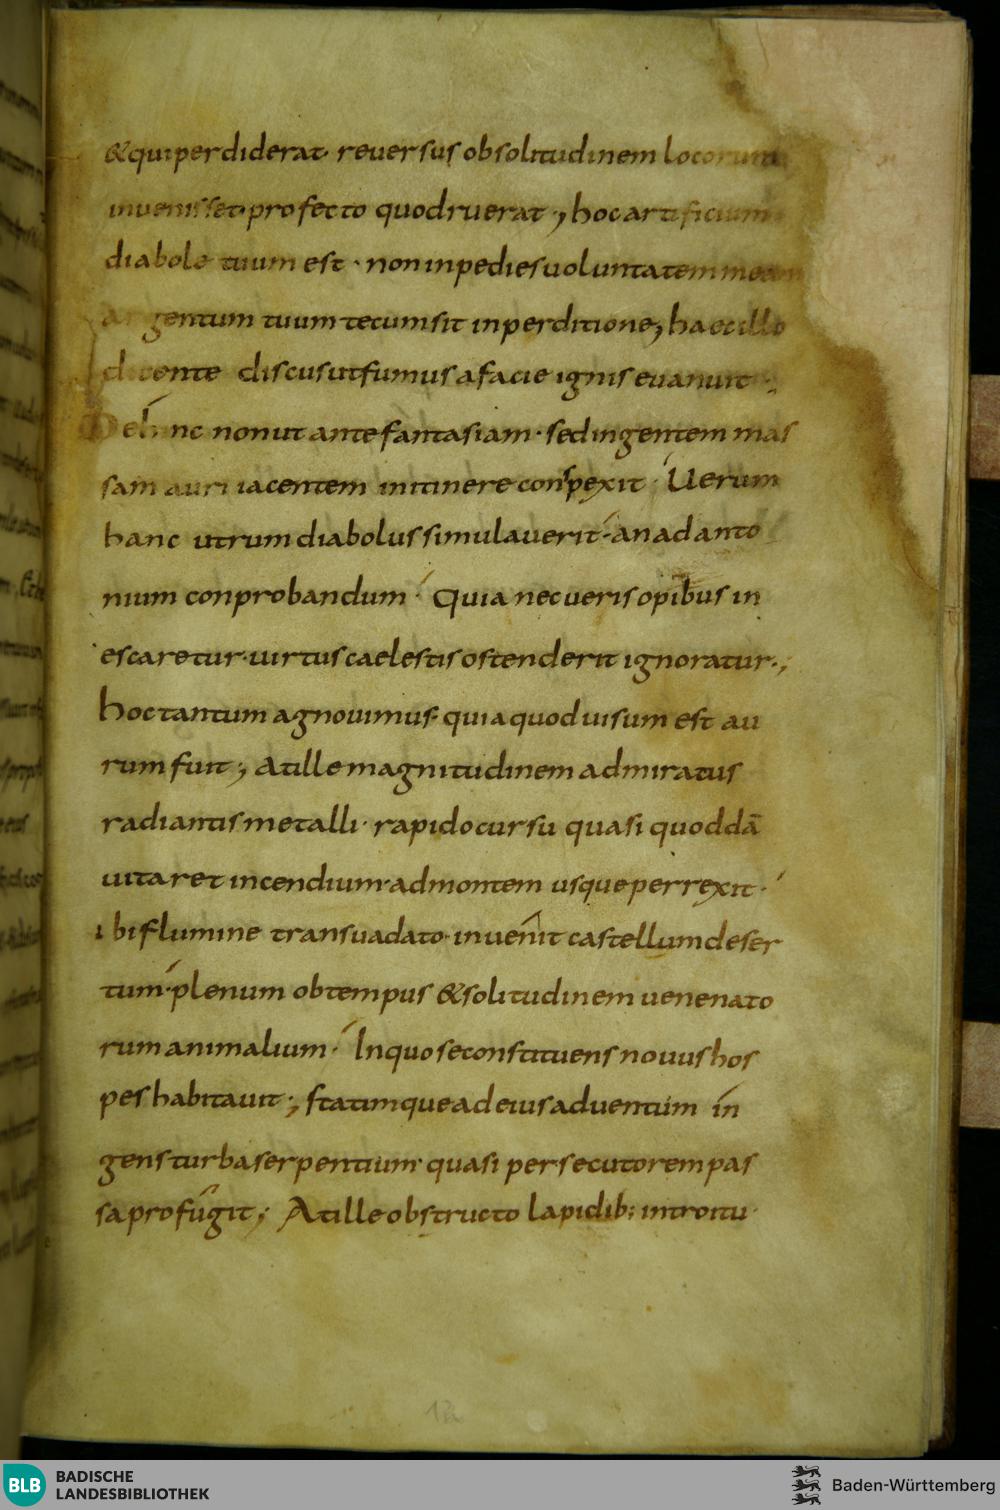 &qui perdiderat· reuersus ob solitudinem locorum
inuenisset· profecto quod ruerat·, hoc artificium
diabole tuum est· non inpedies uoluntatem meam
argentum tuum tecum sit in perditione; haec illo
dicente discus ut fumus a facie ignis euanuit·;
Dehinc non ut ante fantasiam· sed ingentem mas
sam auri iacentem in itinere conspexit· Uerum
hanc utrum diabolus simulauerit· an ad anto
nium conprobandum· Quia nec ueris opibus in
escaretur· uirtus caelestis ostenderit ignoratur·;
hoc tantum agnouimus· quia quod uisum est au
rum fuit; At ille magnitudinem admiratus
radiantis metalli· rapido cursu quasi quoddā
uitaret incendium· ad montem usque perrexit·
ibi flumine transuadato· inuenit castellum deser
tum· plenum ob tempus & solitudinem uenenato
rum animalium· In quo se constituens nouus hos
pes habitauit·; statimque ad eius aduentum in
gens turba serpentium· quasi persecutorem pas
sa profugit; At ille obstructo lapidib; introitu·
12
BLB
BADISCHE
LANDESBIBLIOTHEK
Baden-Württemberg